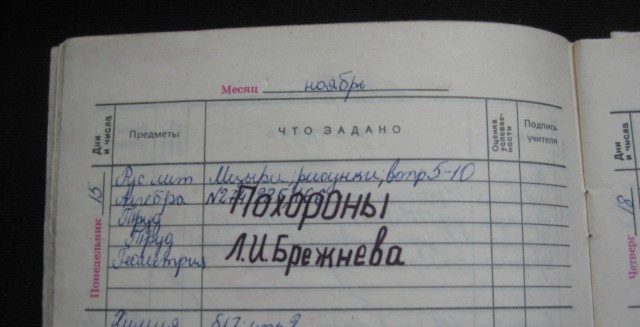 Месяц ноябрь
Дни и числа Предметы ЧТО ЗАДАНО Оценка успеваемости Подпись учителя
Понедельник 15
Рус лит Мцыри, рисунки, вопр 5-10
Алгебра №
Похороны
Труд
Труд
Л.И Брежнева
Геометрия
Химия
Четверг 18